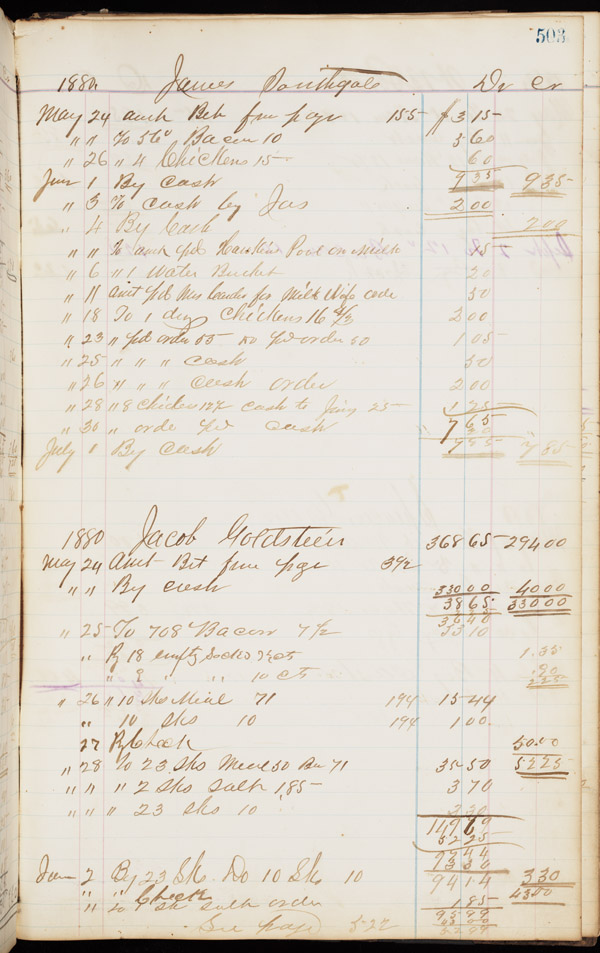 503
1880 James Southgate Dr Cr
May 24 amt Bet from page 155 $3 15
" " To 56# Bacon 10 5 60
" 26 " 4 Chickens 15 60
June 1 By Cash 9 35 9 35
" 3 To cash by Jas 2 00
" 4 By Cash 2 00
" " To amt pd Pool on Milk 25
" 6 " 1 Water Bucket 20
" 11 amt pd Mrs for Milk Wife 50
" 18 To 1 doz Chickens 16 2 00
" 23 " pd order 55 50 pd order 50 1 05
" 25 " " " cash 50
" 26 " " " cash order 2 00
" 28 " 8 chicken 12½ cash to Jim 25 1 25
" 30 " order pd cash
7 65
July 1 By Cash 7 85
1880 Jacob Goldstein 368 65 294 00
May 24 Amt Bet from page 392
" " By cash 330 00 40 00
38 65 330 00
" 25 To 708# Bacon 7½
" By 18 empty Sacks 7½ cts 1.35
" 9 " " 10 cts 90
2 25
" 26 " 10 sks Meal 71 194 15 44
" 10 sks 10 194 1 00
27 By Check 50.00
" 28 To 23 sks Meal 50 Bu 71 35 50 52 25
" " " 2 sks Salt 1,85 3 70
" " " 23 sks 10 2 30
149 69
52 25
June 2 By 23 Sks Do 10 Sks 10 94 14 3 30
" " Check 43 00
" " To 1 sk salt order 1 85
See page 522